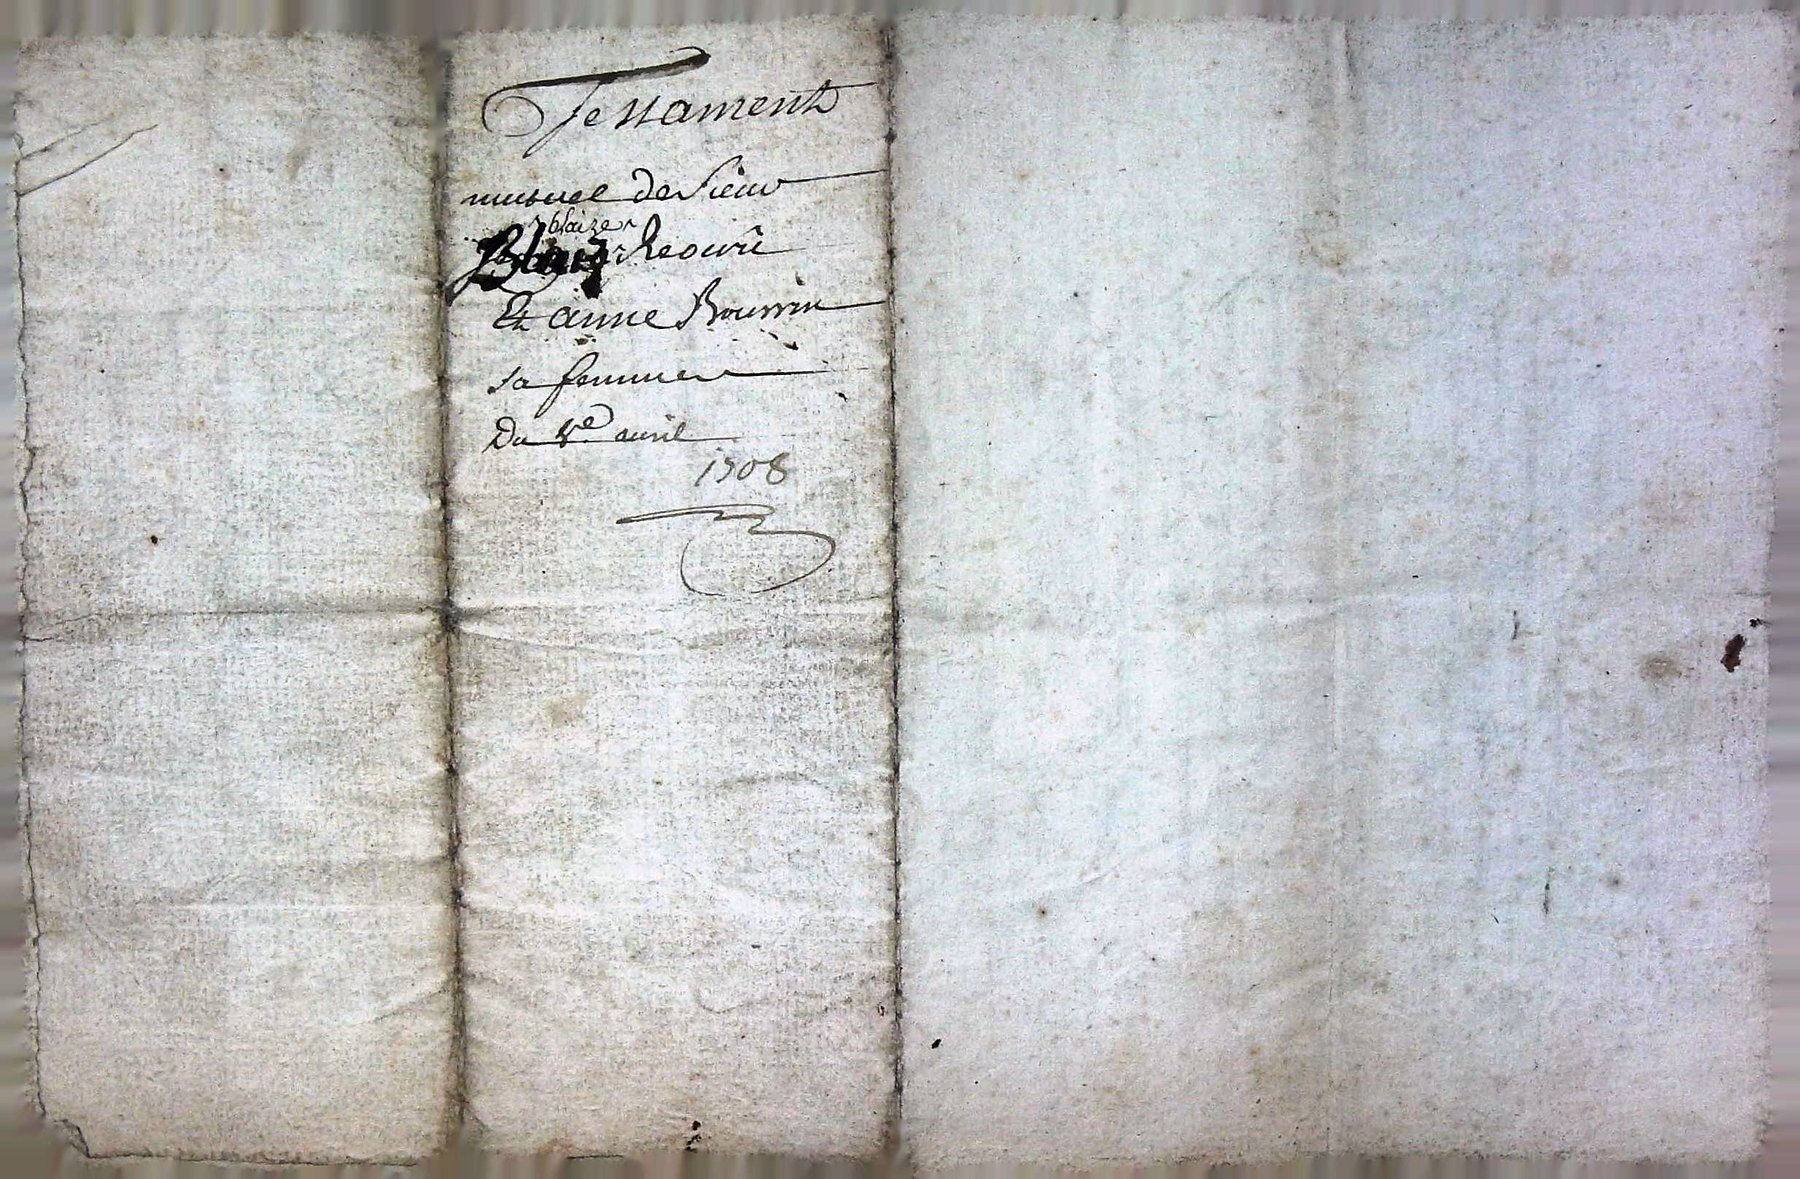 Testament
mutuel de Sieur
blaize
Blaiz
Et anne Rouvrin
sa femme
Du 8e avril
1708